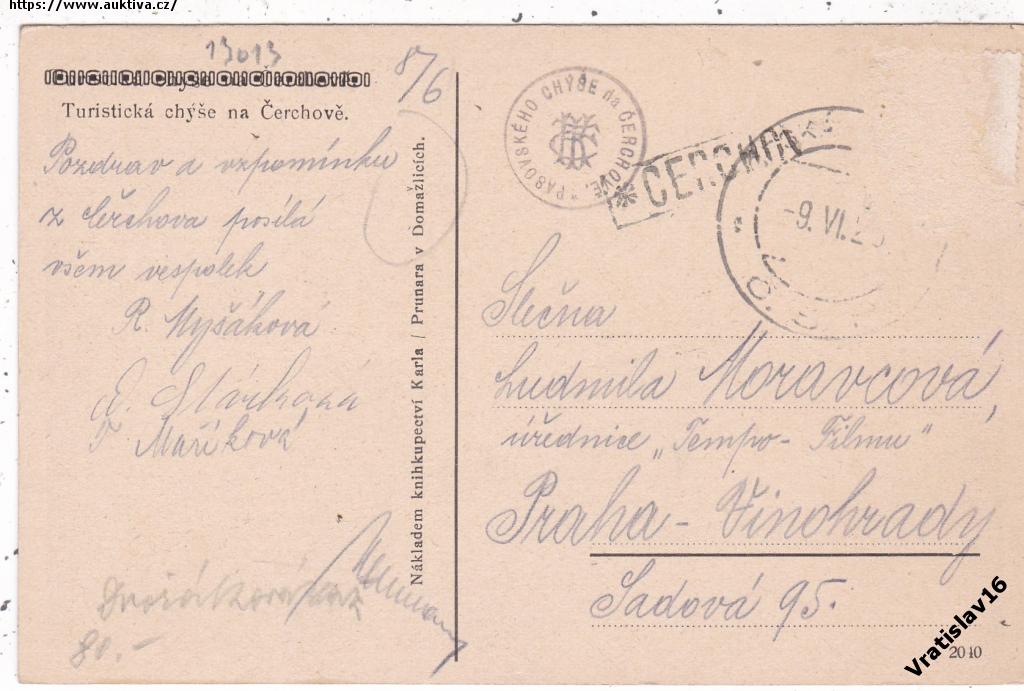 https://www.auktiva.cz/
13013
8/6
Turistická chýše na Čerchově.
Pozdrav a vzpomínku
z Čerchova posílá
všem vespolek
R. Myšáková
Maříková
80.-
Nákladem knihkupectví Karla Prunara v Domažlicích.
PASOVSKÉHO CHÝŠE na ČERCHOVĚ.
ČERCHOV
-9.VI.2
Slečna
Ludmila Moravcová,
úřednice „Tempo-Filmu"
Praha - Vinohrady
Sadová 95.
2010
Vratislav16